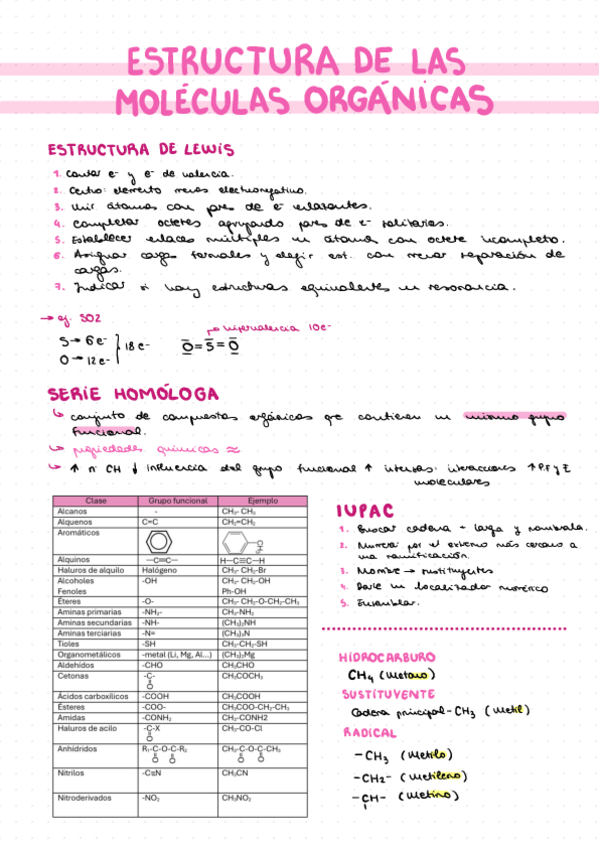 ESTRUCTURA DE LAS
MOLÉCULAS ORGÁNICAS
ESTRUCTURA DE LEWIS
1. Contar e- y e- de valencia.
2. Centro: elemento menos electronegativo.
3. Unir átomos con pares de e- enlazantes.
4. Completar octetes agrupando pares de e- solitarios.
5. Establecer enlaces múltiples en átomo con octete incompleto.
6. Asignar cargas formales y elegir est. con menor separación de
cargas.
7. Indicar si hay estructuras equivalentes en resonancia.
→ ej. SO2
hipervalencia 10e-
S → 6 e-
O → 12 e-
18 e-
O = S = O
SERIE HOMÓLOGA
conjunto de compuestos orgánicos que contienen un mismo grupo
funcional.
propiedades químicas ≈
↑ nº CH ↓ influencia del grupo funcional ↑ intensas interacciones ↑ P.F y E
moleculares
Clase Grupo funcional Ejemplo
Alcanos - CH₃- CH₃
Alquenos C=C CH₂=CH₂
Aromáticos OH
Alquinos —C≡C— H—C≡C—H
Haluros de alquilo Halógeno CH₃- CH₂-Br
Alcoholes -OH CH₃- CH₂-OH
Fenoles Ph-OH
Éteres -O- CH₃- CH₂-O-CH₂-CH₃
Aminas primarias -NH₂- CH₃-NH₂
Aminas secundarias -NH- (CH₃)₂NH
Aminas terciarias -N= (CH₃)₃N
Tioles -SH CH₃-CH₂-SH
Organometálicos -metal (Li, Mg, Al...) (CH₃)₂Mg
Aldehídos -CHO CH₃CHO
Cetonas -C- CH₃COCH₃
O
Ácidos carboxílicos -COOH CH₃COOH
Ésteres -COO- CH₃COO-CH₂-CH₃
Amidas -CONH₂ CH₃-CONH2
Haluros de acilo -C-X CH₃-CO-Cl
O
Anhídridos R₁-C-O-C-R₂ CH₃-C-O-C-CH₃
O O O O
Nitrilos -C≡N CH₃CN
Nitroderivados -NO₂ CH₃NO₂
IUPAC
1. Buscar cadena + larga y nombrala.
2. Numerar por el extremo más cercano a
una ramificación.
3. Nombre → sustituyentes
4. Darle un localizador numérico
5. Ensamblar.
HIDROCARBURO
CH₄ (Metano)
SUSTITUYENTE
Cadena principal - CH₃ (Metil)
RADICAL
- CH₃ (Metilo)
- CH₂ - (Metileno)
- CH - (Metino)